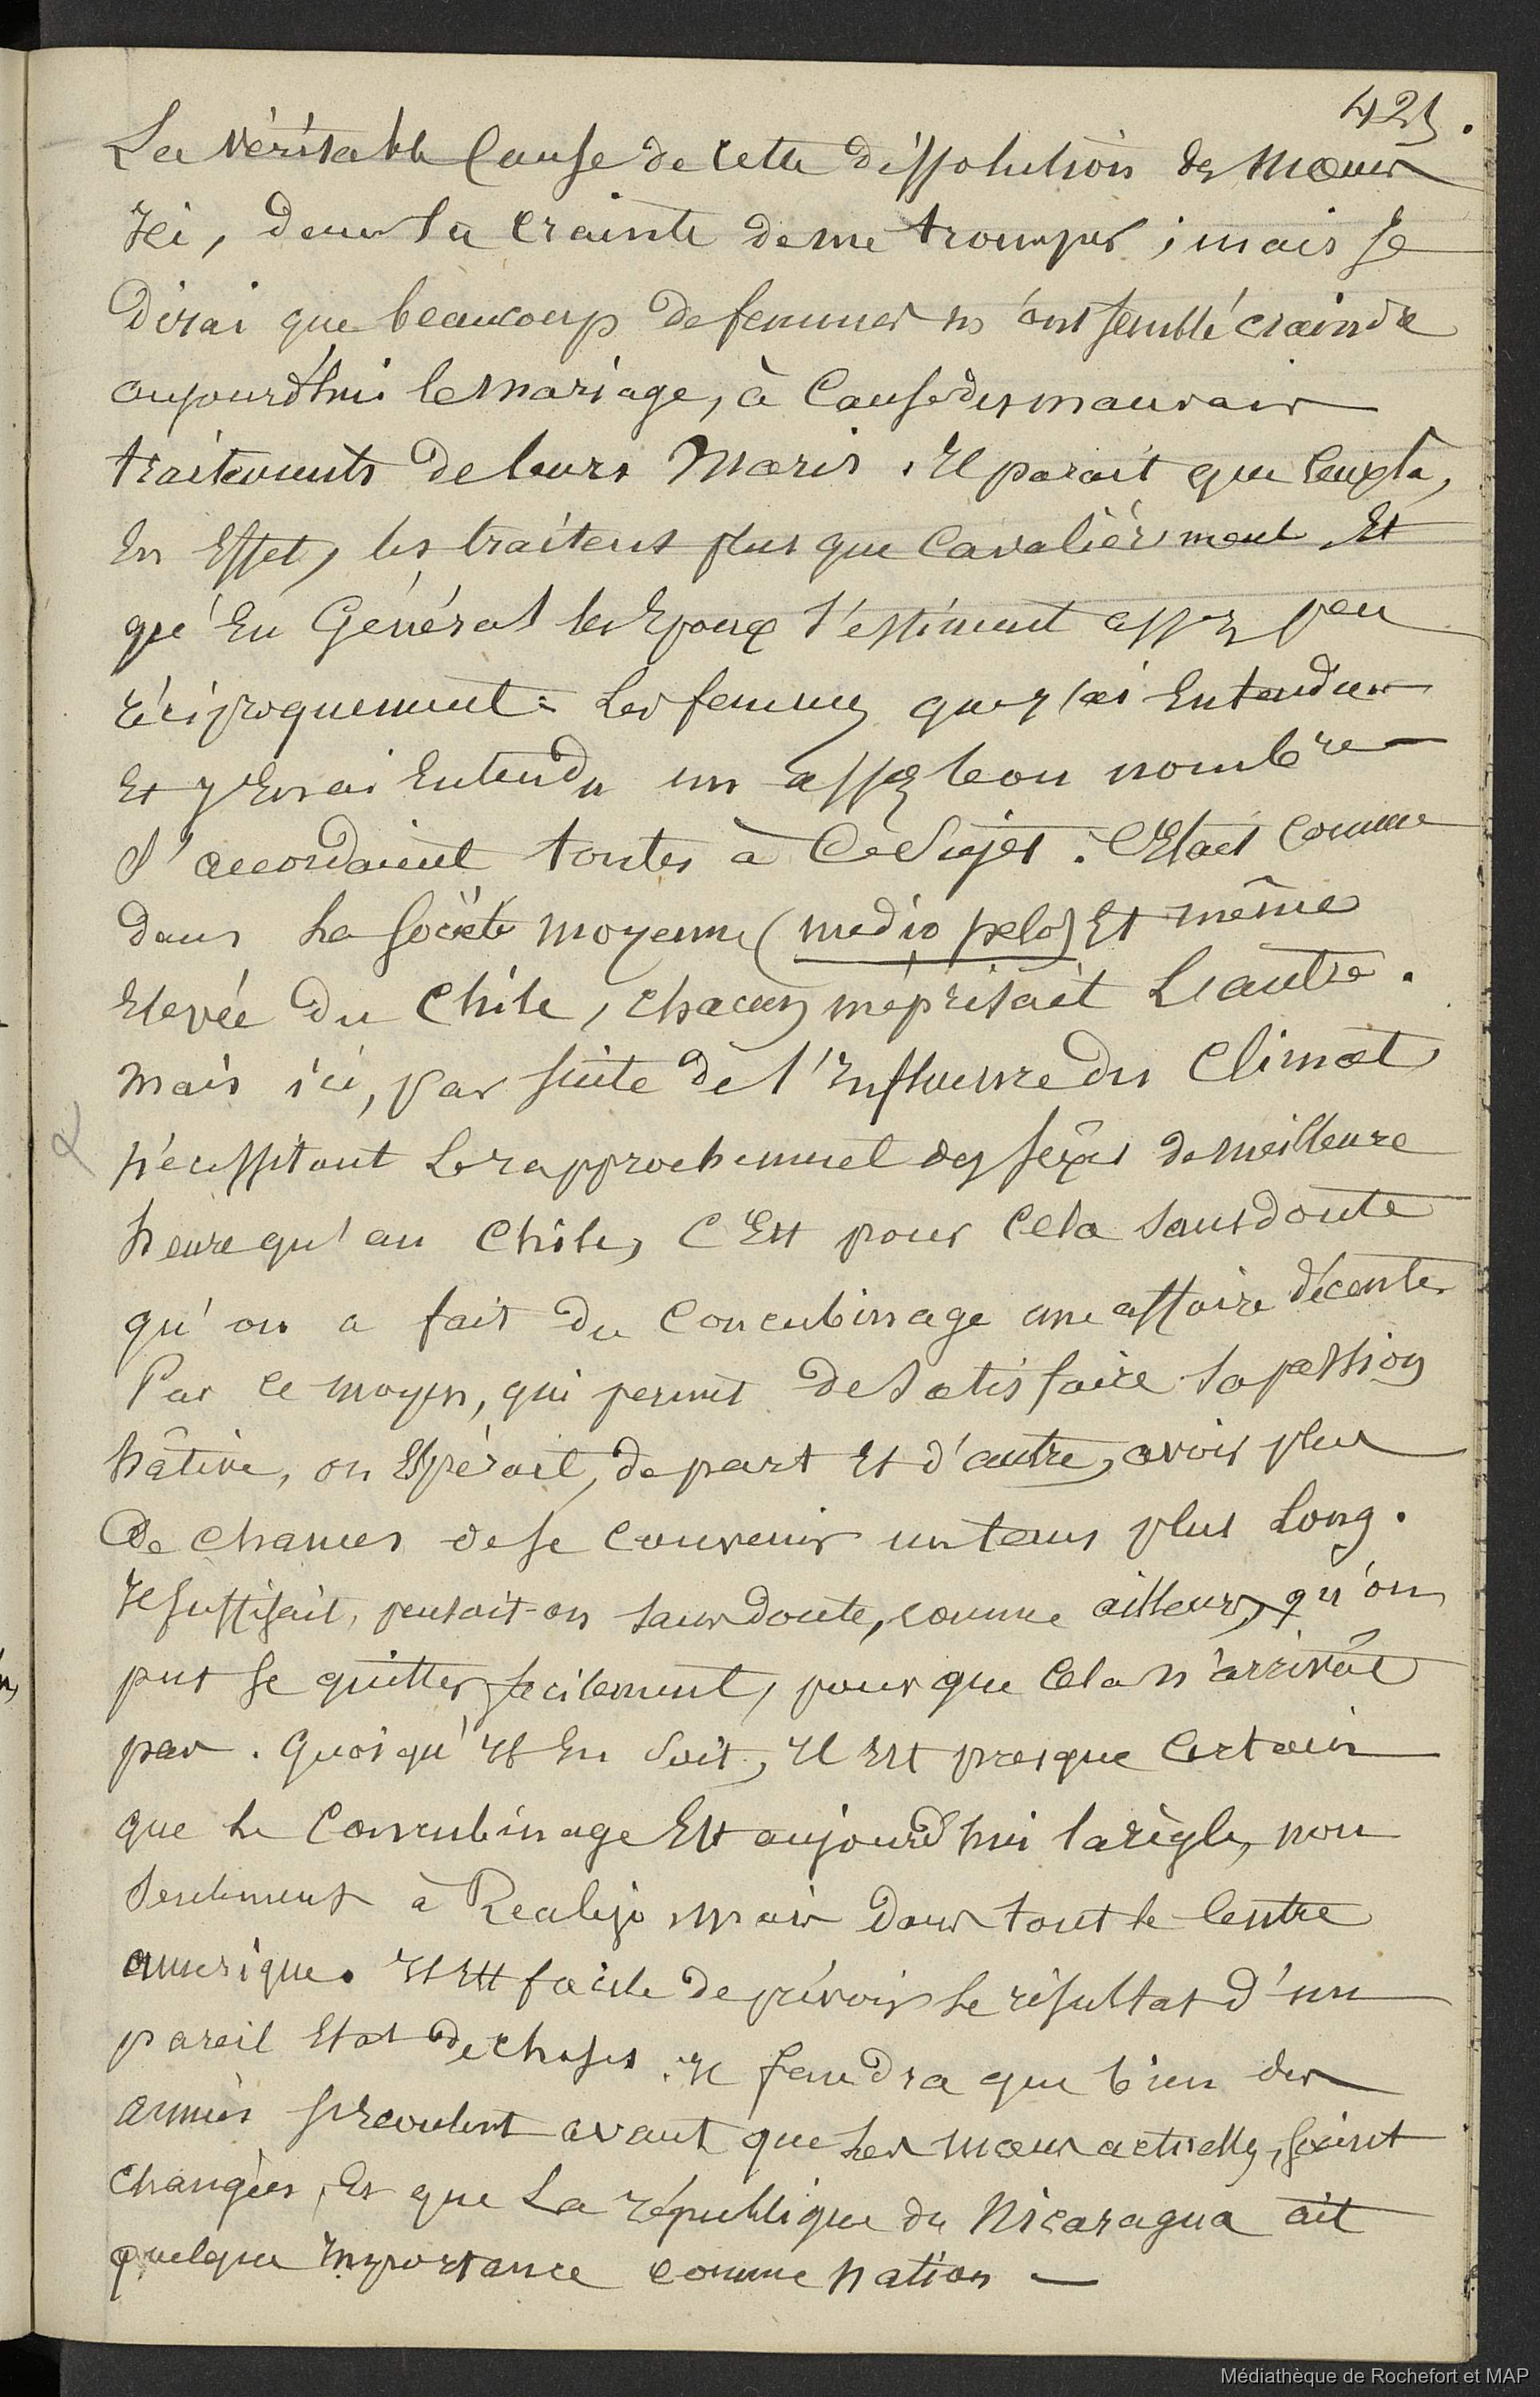 423.
La véritable Cause de cette dissolution des Mœurs
Ici, dans la crainte de me tromper ; mais Je
Dirai que beaucoup de femmes m'ont semblé craindre
aujourd'hui le mariage, à Cause des mauvais
traitements de leurs Maris. Il parait que Ceux-là,
En Effet, les traitent plus que Cavalièrement Et
qu'En Général les Epoux s'estiment assez peu
réciproquement : Les femmes que j'ai Entendues
Et J'En ai Entendu un assez bon nombre
S'accordaient toutes à Ce Sujet. C'Etait Comme
dans La Société moyenne (medio pelo) Et même
Elevée du Chili, chacun méprisait L'autre.
Mais ici, par suite de l'Influence du Climat
nécessitant Le rapprochement des sexes de meilleure
heure qu'au Chili, C'Est pour Cela sans doute
qu'on a fait du Concubinage une affaire décente
Par ce moyen, qui permet de satisfaire sa passion
hâtive, on Espérait, de part Et d'autre, avoir plus
De chances de se Convenir un tems plus Long.
Il suffisait, pensait-on sans doute, comme ailleurs, qu'on
put se quitter facilement, pour que Cela n'arrivât
pas. Quoiqu'Il En Soit, Il Est presque Certain
que Le Concubinage Est aujourd'hui la règle, non
Seulement à Realejo mais dans tout le Centre
amérique. Il Est facile de prévoir Le résultat d'un
pareil Etat de choses. Il faudra que bien des
années s'Ecoulent avant que Les mœurs actuelles, soient
Changées, Et que La république du Nicaragua ait
quelque Importance comme nation —
Médiathèque de Rochefort et MAP